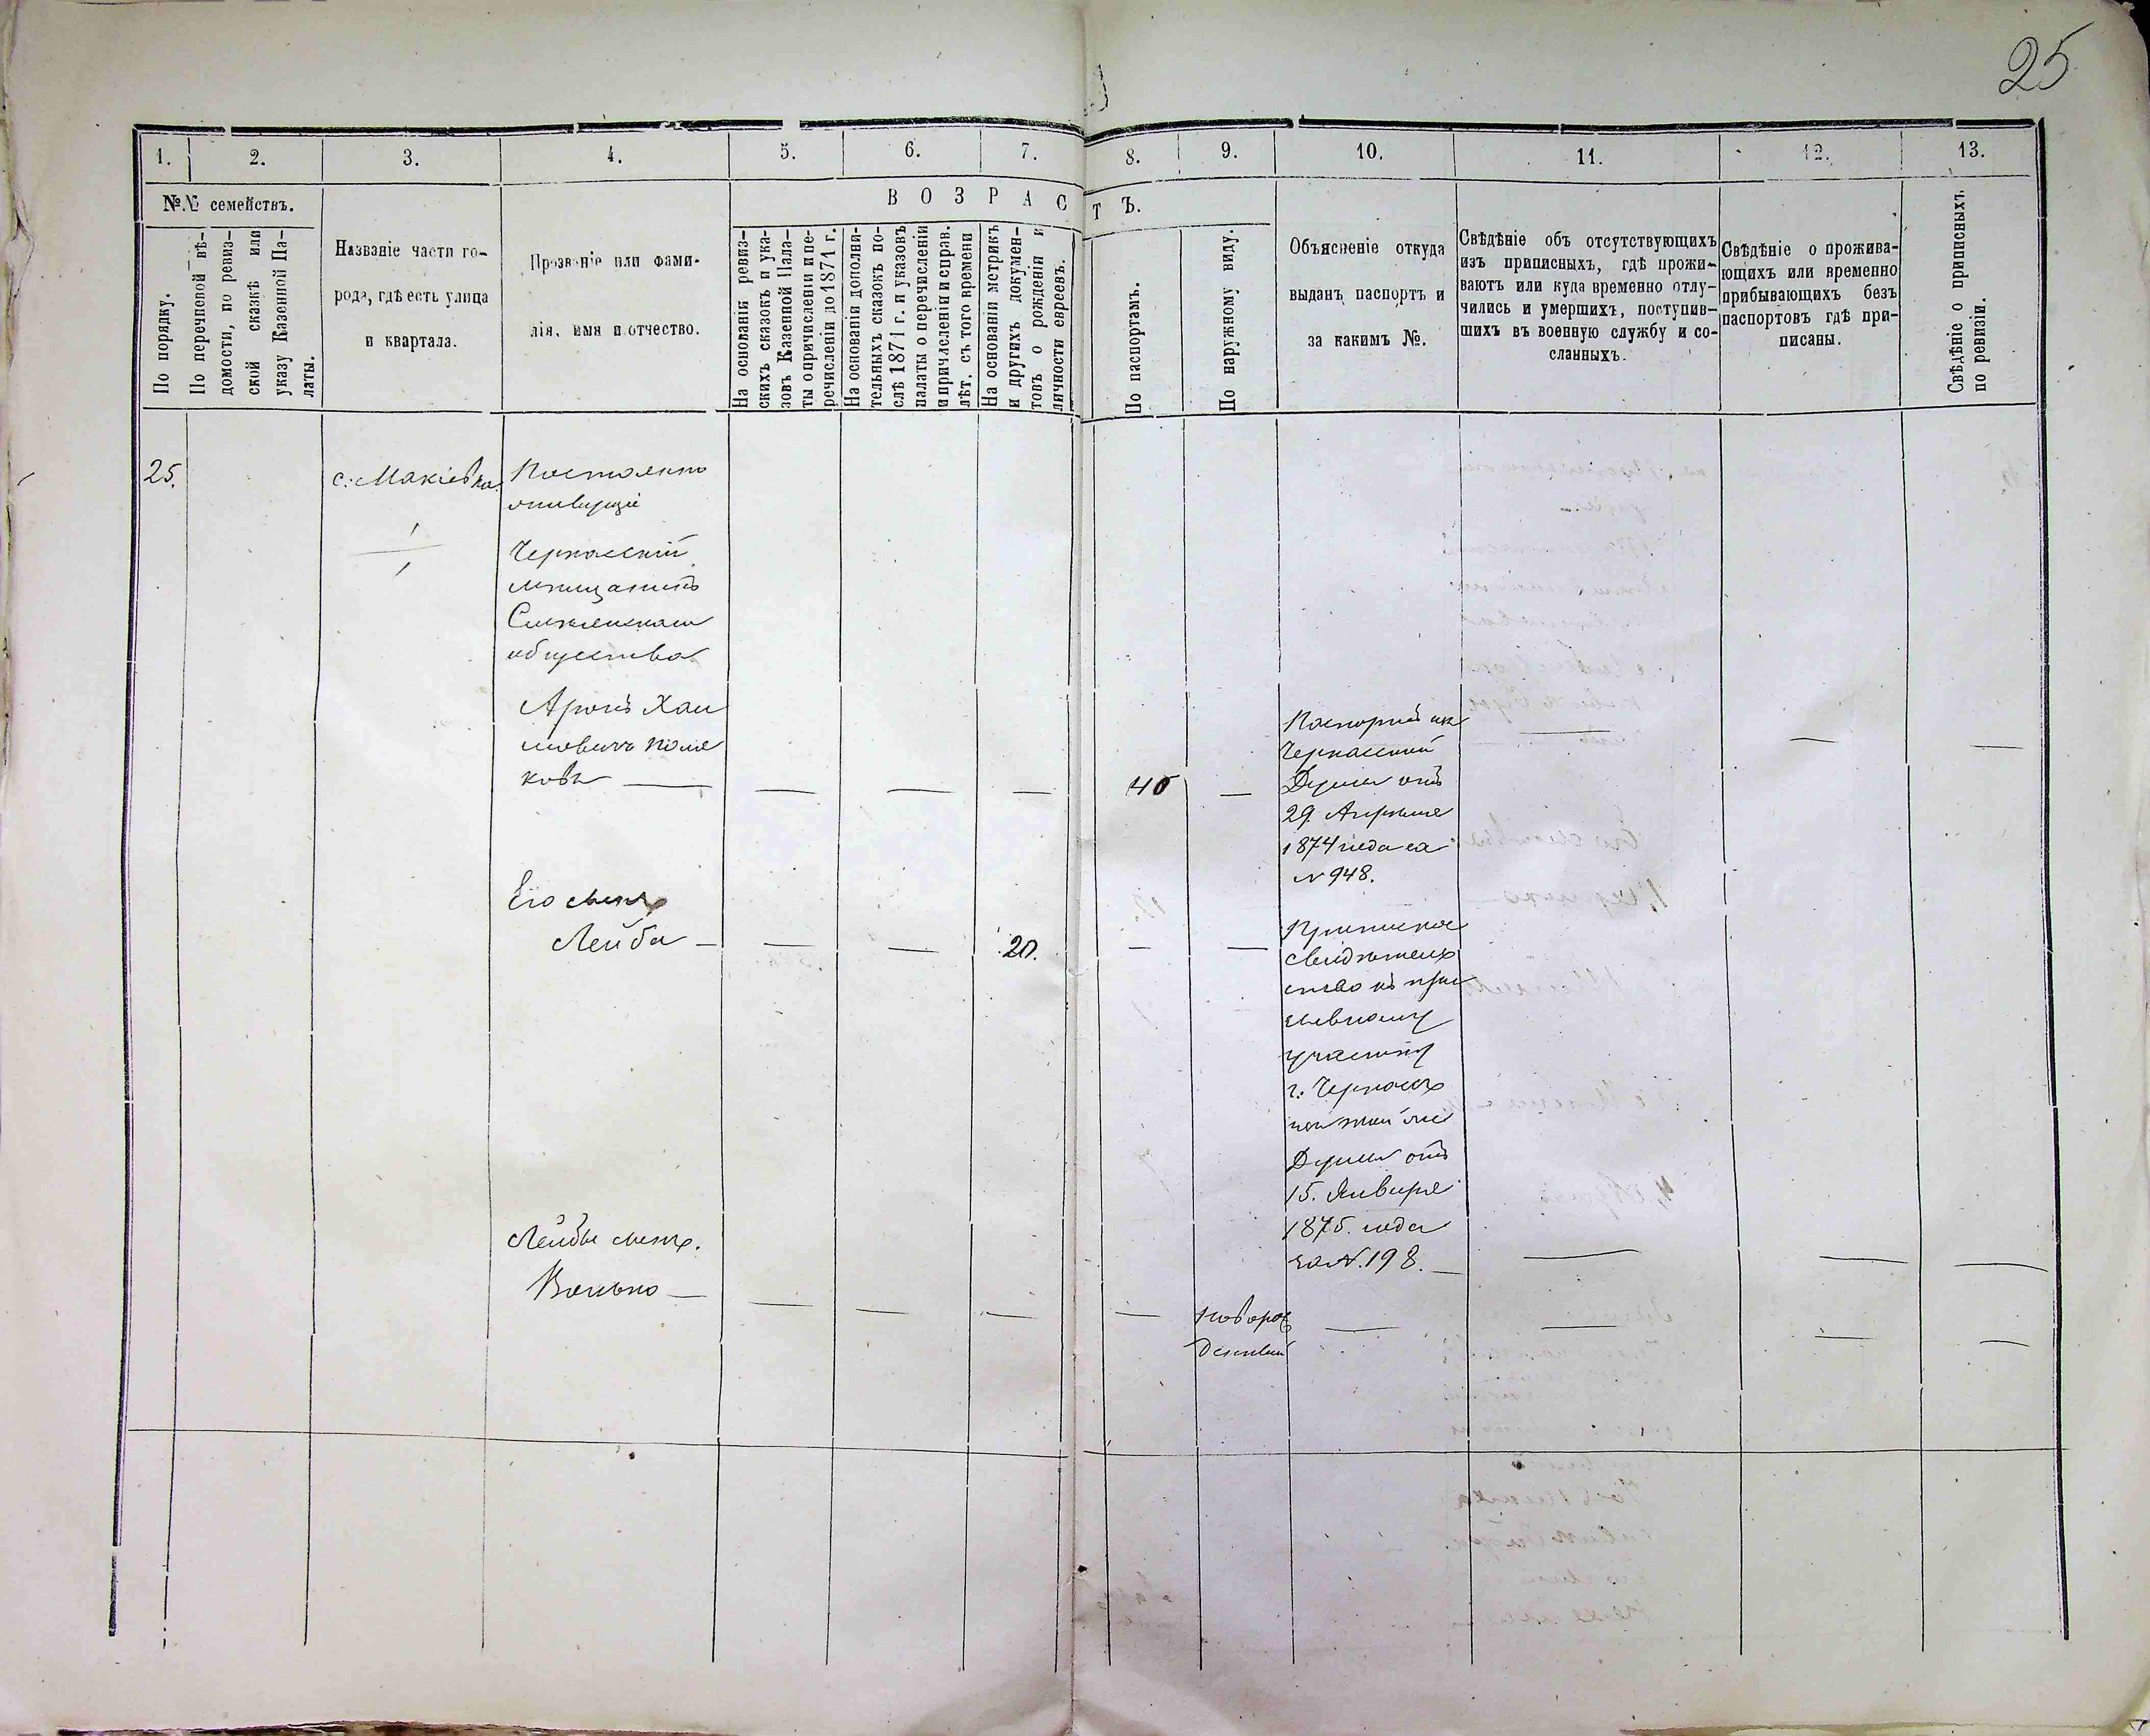 25
1. 2. 3. 4. 5. 6. 7. 8. 9. 10. 11. 12. 13.
№№ семействъ.
По порядку.
По перечневой вѣ-
домости, по ревиз-
ской сказкѣ или
указу Казенной Па-
латы.
Названіе части го-
рода, гдѣ есть улица
и квартала.
Прозваніе или фами-
лія, имя и отчество.
ВОЗРАСТЪ.
На основаніи ревиз-
скихъ сказокъ и ука-
зовъ Казенной Пала-
ты о причисленіи и пе-
речисленіи до 1871 г.
На основаніи дополни-
тельныхъ сказокъ по-
слѣ 1871 г. и указовъ
палаты о перечисленіи
и причисленіи и справ.
лѣт. съ того времени
На основаніи метрикъ
и другихъ докумен-
товъ о рожденіи и
личности евреевъ.
По паспортамъ.
По наружному виду.
Объясненіе откуда
выданъ паспортъ и
за какимъ №.
Свѣдѣніе объ отсутствующихъ
изъ приписныхъ, гдѣ прожи-
ваютъ или куда временно отлу-
чились и умершихъ, поступив-
шихъ въ военную службу и со-
сланныхъ.
Свѣдѣніе о прожива-
ющихъ или временно
прибывающихъ безъ
паспортовъ гдѣ при-
писаны.
Свѣдѣніе о приписныхъ
по ревизіи.
25.
с: Макіевка
Постоянно
живущіе
Черкасскій
мѣщанинъ
Смѣлянскаго
общества
Аронъ Хаи
мовичъ Поля
ковъ —
40
Паспортъ изъ
Черкасской
Думы отъ
29. Апрѣля
1874 года за
№ 948.
Его сынъ
Лейба —
20.
Приписное
свидѣтель
ство къ при
зывному
участку
г. Черкасъ
той же
Думы отъ
15. Января
1875. года
за №. 198. —
Лейбы сынъ.
Волько —
новорож
денный